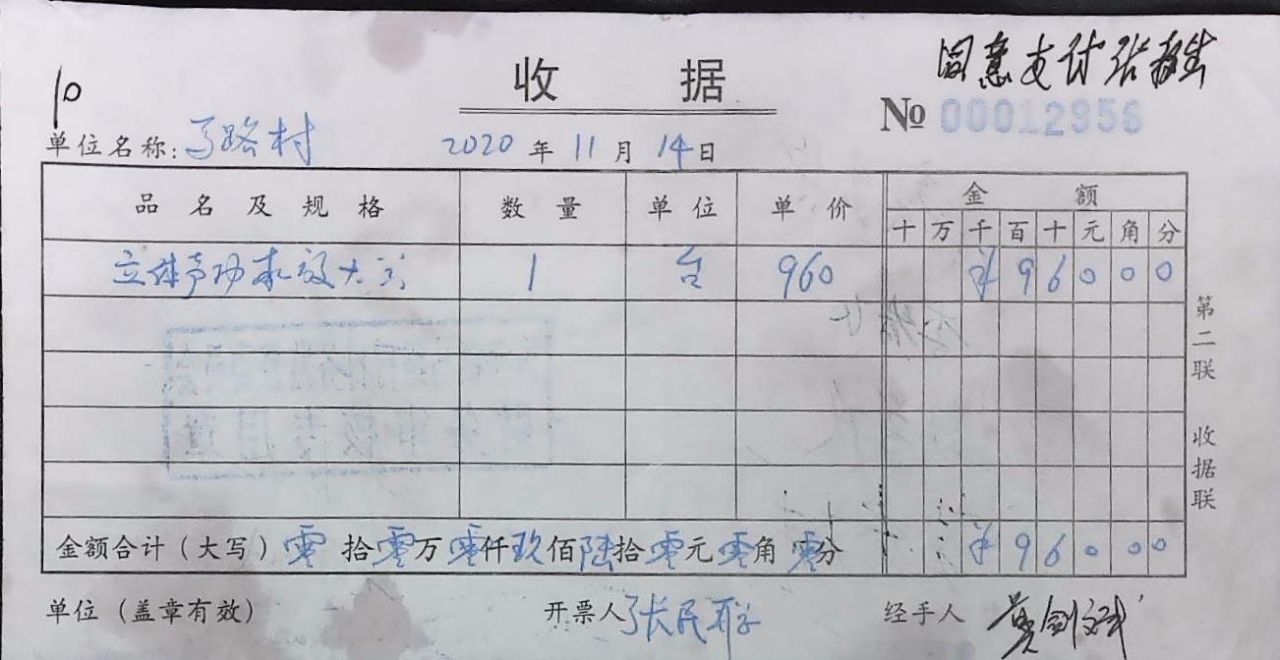 同意支付 张
10
收 据
№ 00012956
单位名称: 马路村 2020 年 11 月 14 日
品名及规格 数量 单位 单价 金额
十 万 千 百 十 元 角 分
立体声功 1 台 960 ¥ 9 6 0 0 0
金额合计(大写) 零拾零万零仟玖佰陆拾零元零角零分 ¥ 9 6 0 0 0
单位(盖章有效) 开票人 张民 经手人 黄剑斌
第二联 收据联